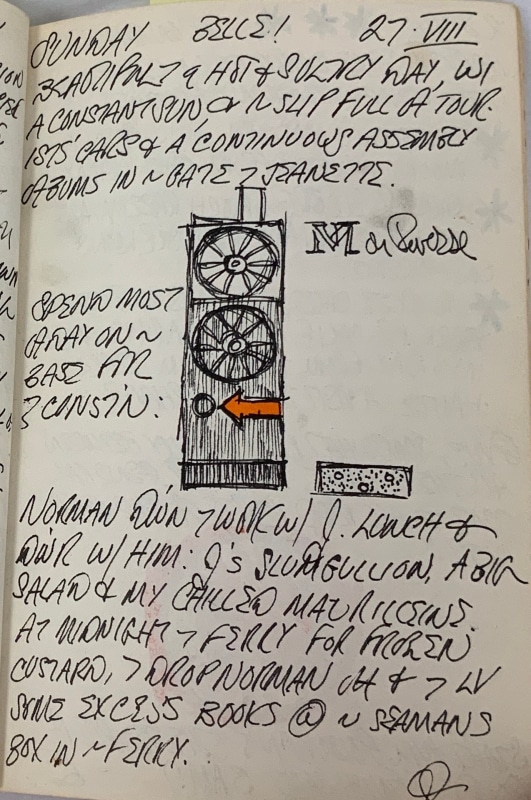 SUNDAY BELLE! 27·VIII
BEAUTIFUL > a HOT & SULTRY DAY, W/
A CONSTANT SUN, & ~ SLIP FULL OF TOUR-
ISTS' CARS & A CONTINUOUS ASSEMBLY
OF BUMS IN ~ GATE > JEANETTE.
M on Reverse
SPEND MOST
OF DAY ON ~
BASE FIR
CONST'N:
NORMAN DWN > WORK W/ J. LUNCH &
DIN'R W/ HIM: J's SLUMGULLION, A BIG
SALAD & MY CHILLED
AT MIDNIGHT > FERRY FOR FROZEN
CUSTARD, > DROP NORMAN OFF & > LV
SOME EXCESS BOOKS @ ~ SEAMANS
BOX IN ~ FERRY.